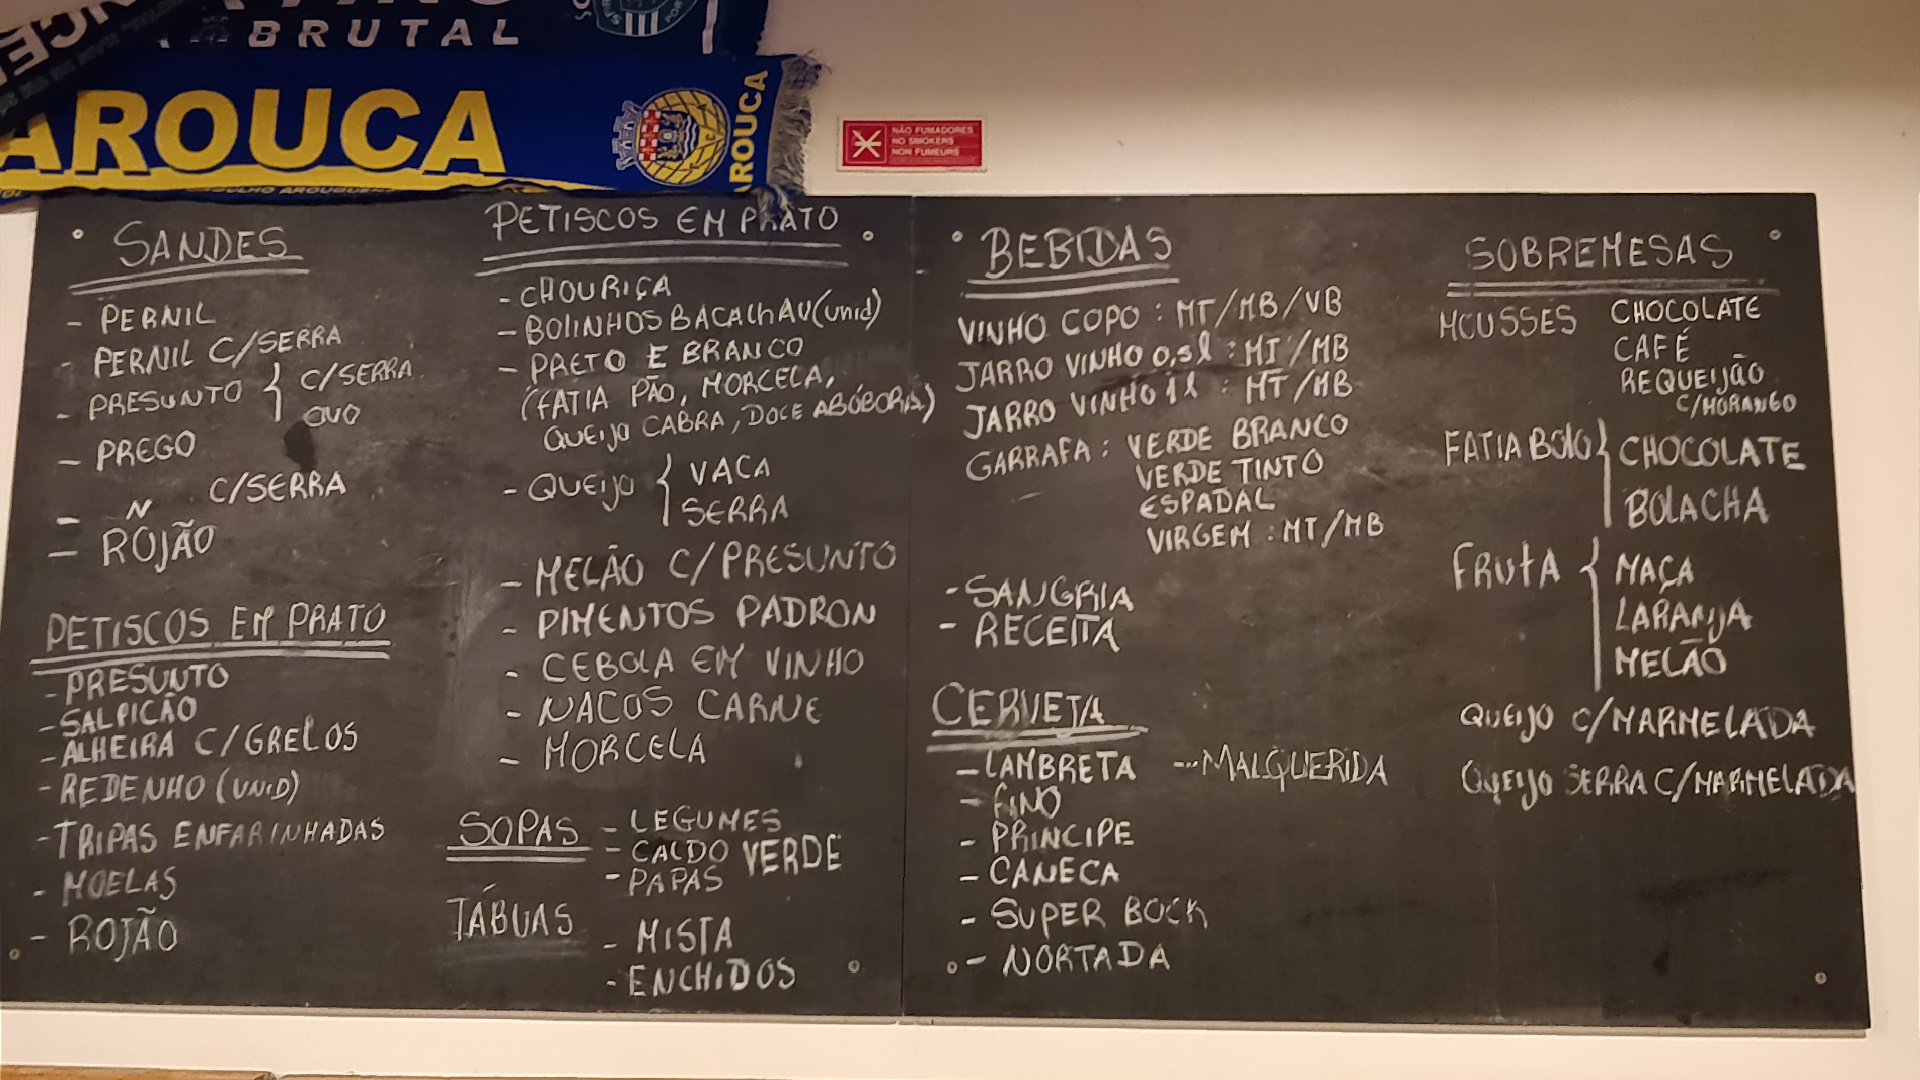 BRUTAL
AROUCA
AROUCA
NÃO FUMADORES
NO SMOKERS
NON FUMEURS
SANDES
- PERNIL
- PERNIL C/SERRA
- PRESUNTO { C/SERRA
OVO
- PREGO
- " C/SERRA
- ROJÃO
PETISCOS EM PRATO
- PRESUNTO
- SALPICÃO
- ALHEIRA C/GRELOS
- REDENHO (UNID)
- TRIPAS ENFARINHADAS
- MOELAS
- ROJÃO
PETISCOS EM PRATO
- CHOURIÇA
- BOLINHOS BACALHAU (unid)
- PRETO E BRANCO
(FATIA PÃO, MORCELA,
QUEIJO CABRA, DOCE ABÓBORA)
- QUEIJO { VACA
SERRA
- MELÃO C/PRESUNTO
- PIMENTOS PADRON
- CEBOLA EM VINHO
- NACOS CARNE
- MORCELA
SOPAS - LEGUMES
- CALDO VERDE
- PAPAS
TÁBUAS
- MISTA
- ENCHIDOS
BEBIDAS
VINHO COPO : MT/MB/VB
JARRO VINHO 0,5l : MT/MB
JARRO VINHO 1l : MT/MB
GARRAFA : VERDE BRANCO
VERDE TINTO
ESPADAL
VIRGEM : MT/MB
- SANGRIA
- RECEITA
CERVEJA
- LAMBRETA --- MALQUERIDA
- FINO
- PRINCIPE
- CANECA
- SUPER BOCK
- NORTADA
SOBREMESAS
MOUSSES CHOCOLATE
CAFÉ
REQUEIJÃO
C/MORANGO
FATIA BOLO { CHOCOLATE
BOLACHA
FRUTA { MAÇA
LARANJA
MELÃO
QUEIJO C/MARMELADA
QUEIJO SERRA C/MARMELADA